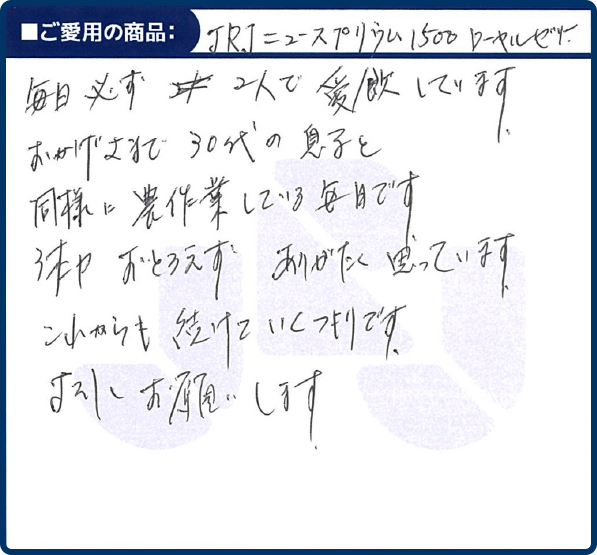 ■ご愛用の商品: JRJニュースプリウム1500ローヤルゼリー
毎日必ず 2人で愛飲しています。
おかげさまで30代の息子と
同様に農作業している毎日です
体力おとろえず ありがたく思っています。
これからも続けていくつもりです。
よろしくお願いします。